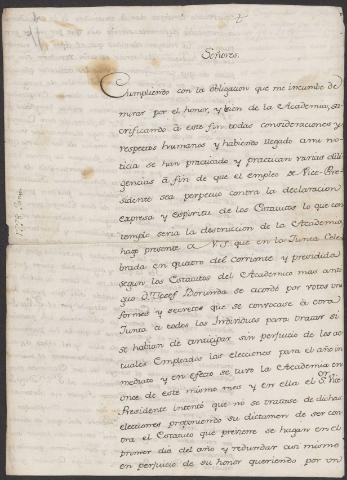 Señores.
Cumpliendo con la obligacion que me incumbe de
mirar por el honor, y bien de la Academia, sa-
crificando à este fin todas consideraciones y
respetos humanos y habiendo llegado a mi no
ticia se han practicado y practican varias dili
gencias à fin de que el empleo de Vice-Pre-
sidente sea perpetuo contra la declaracion
expresa y espiritu de los Estatutos lo que con
templo seria la destruccion de la Academia
hago presente a V.S. que en la Junta Cele
brada en quatro del corriente y presidida
segun los Estatutos del Academico mas anti
guo Dn. Josef se acordó por votos uni
formes y secretos que se convocase à otra
Junta à todos los Individuos para tratar si
se habian de anticipar sin perjuicio de los ac
tuales Empleados las elecciones para el año in
mediato y en efecto se tuvo la Academia en
once de este mismo mes y en ella el Sor. Vice
Presidente intentó que no se tratase de dichas
elecciones proponiendo su dictamen de ser con
tra el Estatuto que previene se hagan en el
primer dia del año y redundar asi mismo
en perjuicio de su honor queriendo por un